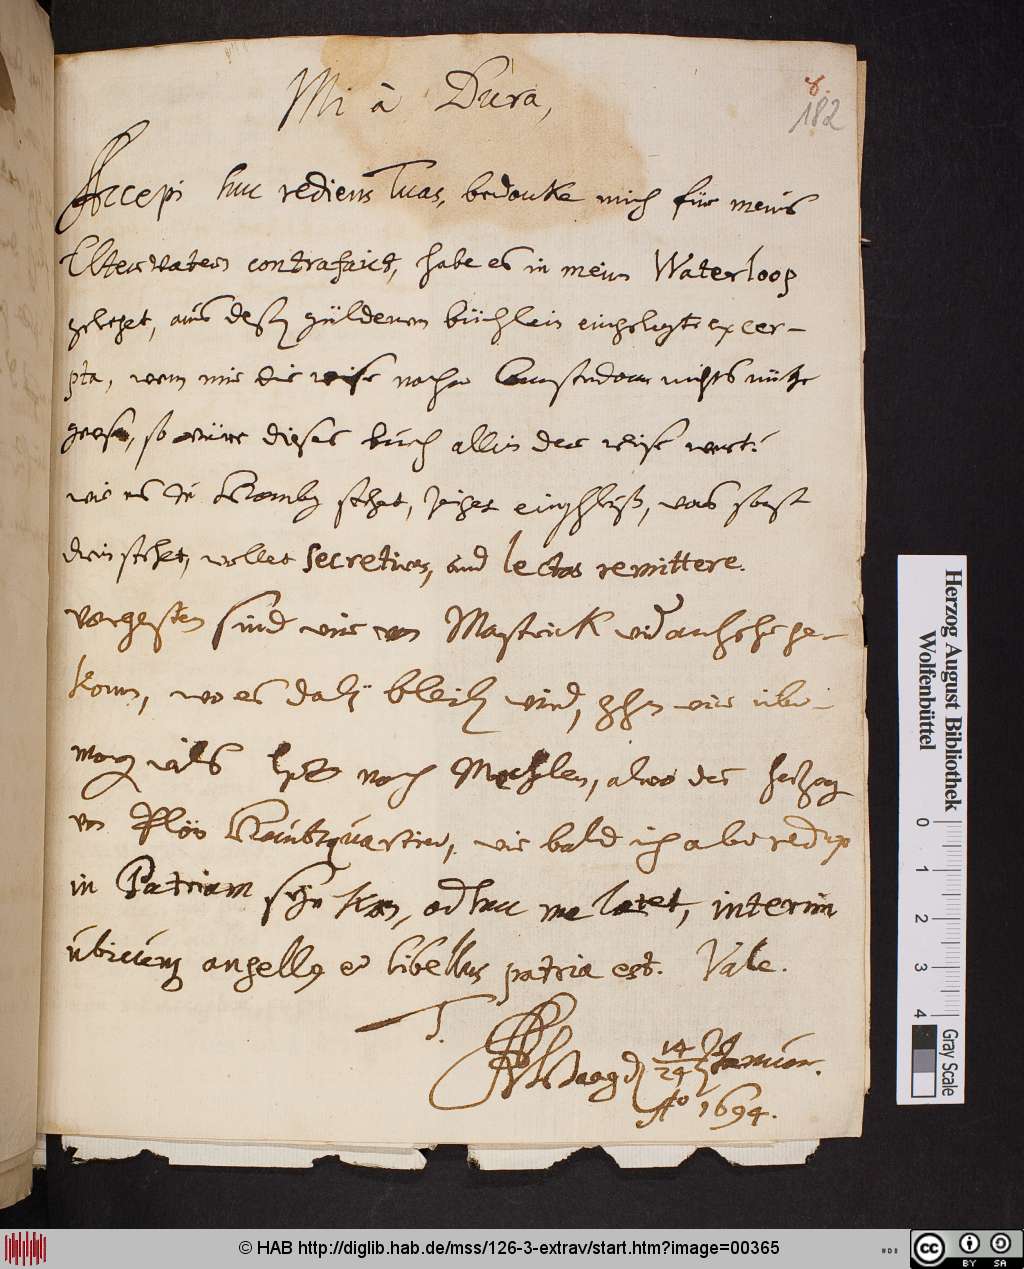 Mi à Dura,
8.
182
Accepi huc rediens tuas, bedancke mich für meins
Eltervatern contrafaict, habe es in mein Waterloos
geleget, aus deß güldenem büchlein eingelegte excer-
pta, wen mir die reise nacher Amsterdam nichts nütze
gewesen, so wäre dieses buch allein der reise wert:
wie es zu stehet, zeiget einschluß, was sonst
drin stehet, wollet secretiren, und lectas remittere.
vorgestern sind wir von Mastrick
komen, wo es dabey bleiben wird, gehen wir über-
morgen nach Mecheln, alwo der Hertzog
von Plön Haubtquartier, wie bald ich aber redux
in Patriam seyn kan, adhuc me latet, interim
ubicunque angellus et libellus patria est. Vale.
T.
Haag d 14/24 Januar.
Ao 1694.
Herzog August Bibliothek
Wolfenbüttel
0 1 2 3 4
Gray Scale
© HAB http://diglib.hab.de/mss/126-3-extrav/start.htm?image=00365
cc BY SA